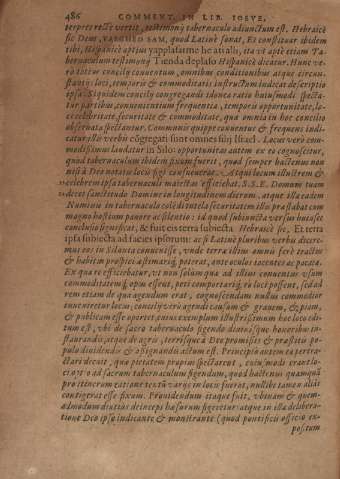 486 COMMENT. IN LIB. IOSVE,
terpres recte vertit, testimonij tabernaculum adiunctum est. Hebraicè
sic Deus, quod Latinè sonat, Et constituit ibidem
tibi, Hispanicè aptius yapplasarme he ati allis, ita vt aptè etiam Ta-
bernaculum testimonij Tienda deplaso Hispanicè dicatur. Hunc ve-
rò totius concilij conuentum, omnibus conditionibus atque circun-
stantijs loci, temporis & commoditatis instructum indicat descriptio
ipsa. Siquidem concilij congregandi iduneo ratio huiusmodi specta-
tur partibus, conuenientium frequentia, temporis opportunitate, lo-
ci celebritate, securitate & commoditate, quæ omnia in hoc concilio
obseruata spectantur. Communis quippe conuentus & frequens indi-
catur illis verbis cõgregati sunt omnes filij Israel. Locus verò com-
modissimus laudatur in Silo: opportunitas autem ex eo cognoscitur,
quòd tabernaculum ibidem fixum fuerit, quod semper hactenus non
nisi à Deo notatis locis figi consueuerat. Atqui locum illustrem &
celebrem ipsa tabernaculi maiestas efficiebat. S.S.E. Domum tuam
decet sanctitudo Domine in longitudinem dierum. atque illa eadem
Numinis in tabernaculo coli debita securitatem illis præstabat cum
magno hostium pauore ac silentio: id quod subiuncta versus huiusce
conclusio significat, & fuit eis terra subiecta Hebraicè sic, Et terra
ipsa subiecta ad facies ipsorum: ac si Latinè pluribus verbis dicere-
mus eos in Silonta conuenisse, vnde terra illius omnis ferè tractus
& habitus prospici æstimariq́; poterat, ante oculos iacentes ac pacata.
Ex qua re efficiebatur, vt non solùm quæ ad illius conuentus vsum
commoditatemq́; opus essent, peti comportariq́; eò loci possent, sed ad
rem etiam de qua agendum erat, cognoscendam nullus commodior
inueniretur locus; concilij verò agendi causam & grauem, & piam,
& publicam esse oportet, cuius exemplum illustrissimum hoc loco edi-
tum est, vbi de sacro tabernaculo figendo diuinisque honoribus in-
staurandis, atque de agris, terrisque à Deo promissis & præstitis po-
pulo diuidendis & assignandis actum est. Principio autem ex pertrac-
tari decuit, quæ pietatem propiùs spectarent, cuiusmodi erant lo-
catio ad sacrum tabernaculum figendum, quod hactenus quamquã
pro itinerum ratione tentũ varijs in locis fuerat, nullibi tamen aliàs
contigerat esse fixum. Prouidendum itaque fuit, vbinam & quem-
admodum diutius deinceps hasurum figeretur: atque in illa delibera-
tione Deo ipso indicante & monstrante (quod pontificis officio ex-
positum